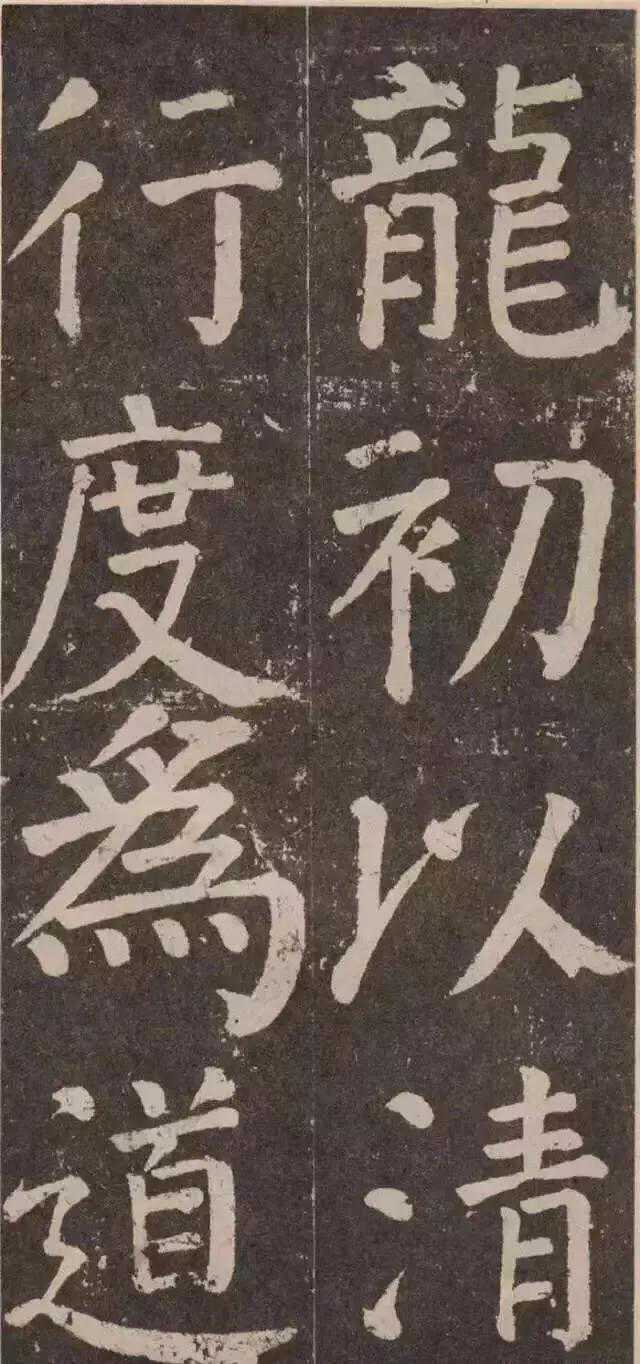 龍初以清
行度為道